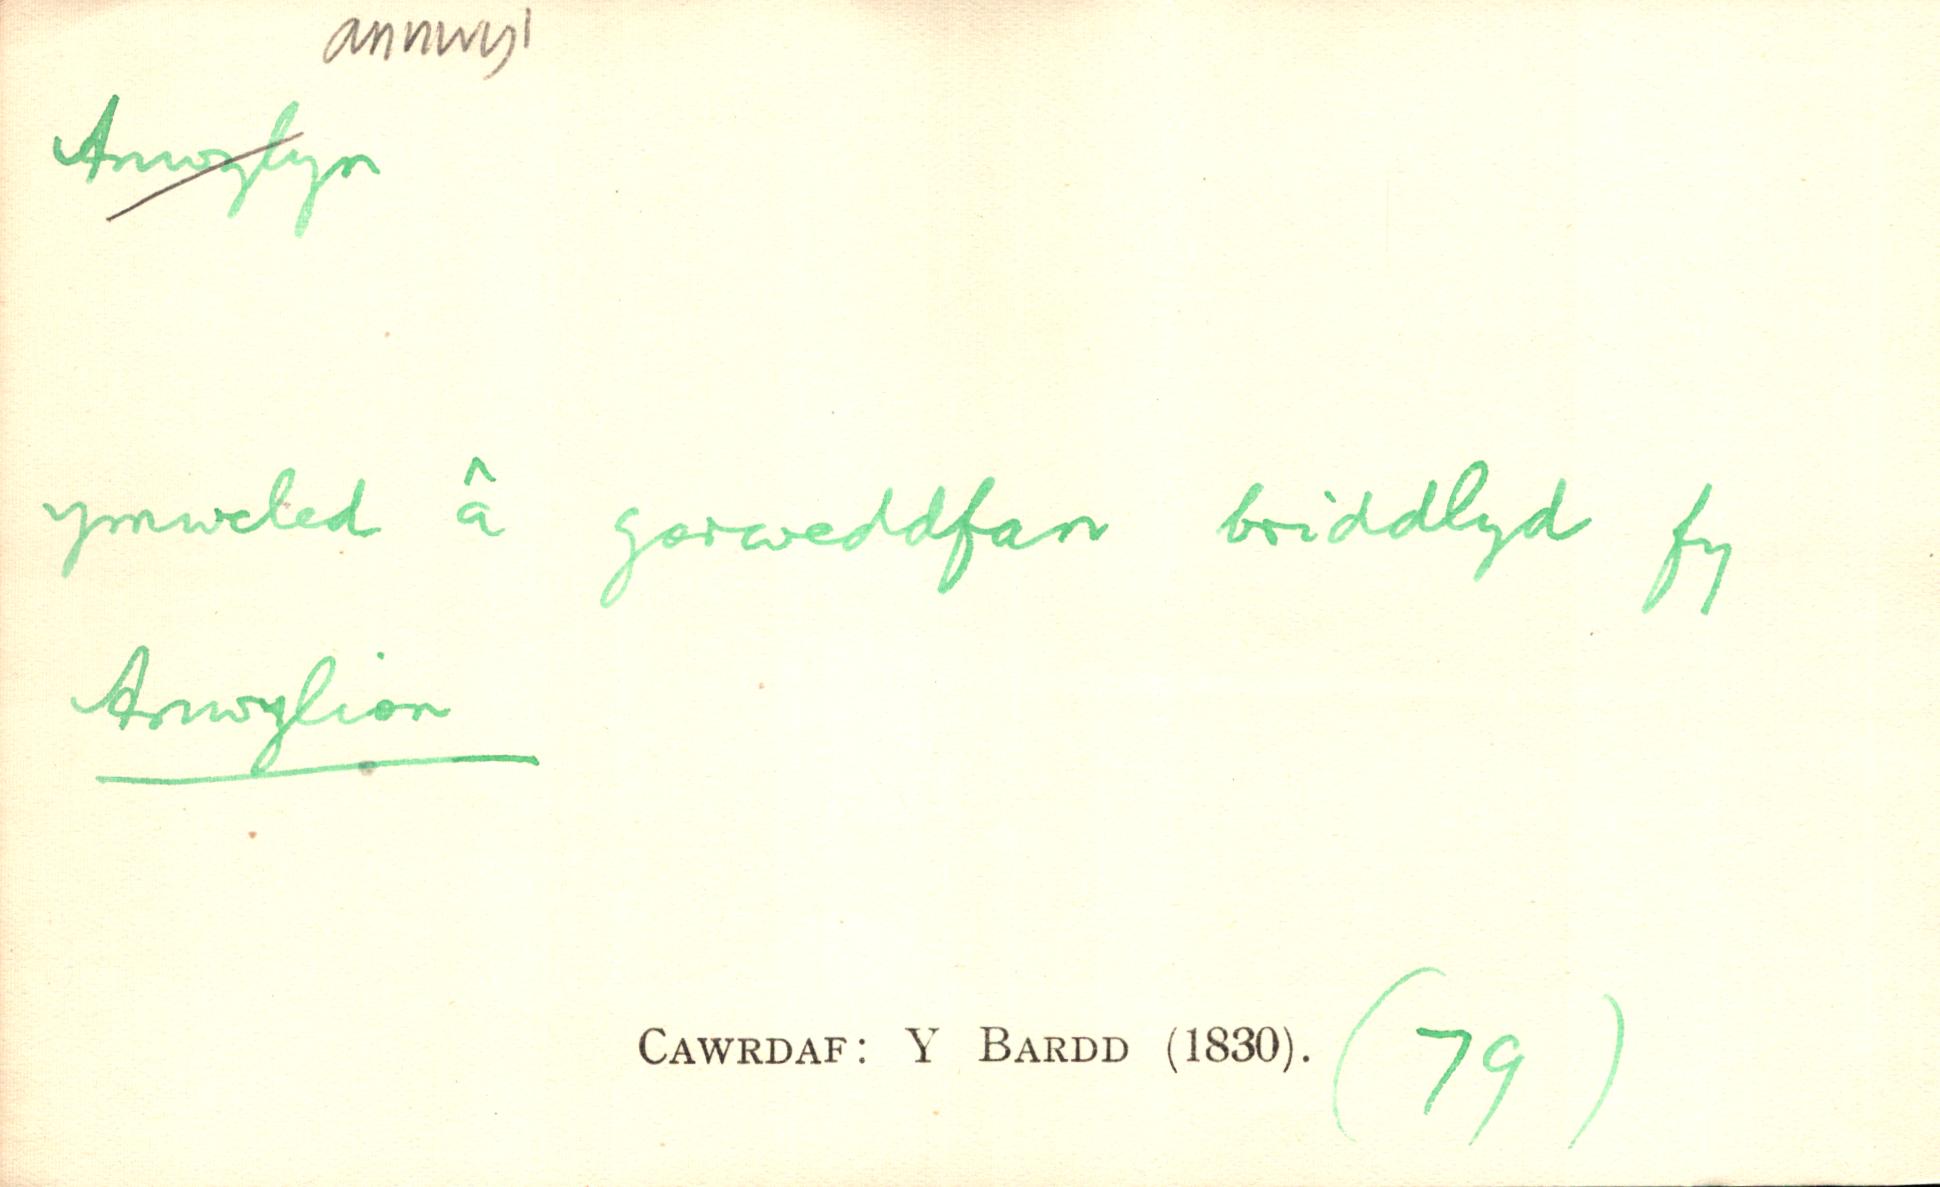 annwyl
Anwylyn
ymweled â gorweddfan briddlyd fy
Anwylion
CAWRDAF: Y BARDD (1830). (79)